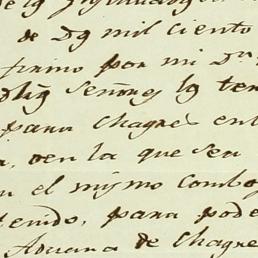 de Dg mil ciento
firmo por mi Dn
Señores lg ten
para Chagres en
, o en la que sea
n el mismo Combo
tenido, para pode
Aduana de Chagre